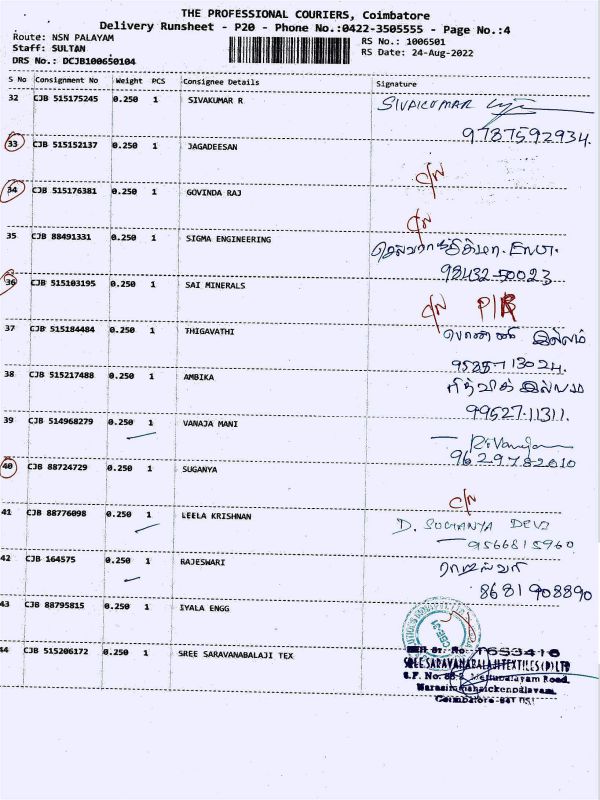 THE PROFESSIONAL COURIERS, Coimbatore
Delivery Runsheet - P20 - Phone No.:0422-3505555 - Page No.:4
Route: NSN PALAYAM
RS No.: 1006501
Staff: SULTAN
RS Date: 24-Aug-2022
DRS No.: DCJB100650104
S No Consignment No Weight PCS Consignee Details Signature
32 CJB 515175245 0.250 1 SIVAKUMAR R SIVAKUMAR
9787592934.
33 CJB 515152137 0.250 1 JAGADEESAN
34 CJB 515176381 0.250 1 GOVINDA RAJ
35 CJB 88491331 0.250 1 SIGMA ENGINEERING
98432-50023
36 CJB 515103195 0.250 1 SAI MINERALS
37 CJB 515184484 0.250 1 THIGAVATHI இல்லம்
38 CJB 515217488 0.250 1 AMBIKA
99527-11311.
39 CJB 514968279 0.250 1 VANAJA MANI
9629782010
40 CJB 88724729 0.250 1 SUGANYA
41 CJB 88776098 0.250 1 LEELA KRISHNAN D. SUGANYA DEVI
9566815960
42 CJB 164575 0.250 1 RAJESWARI
8681908890
43 CJB 88795815 0.250 1 IYALA ENGG
44 CJB 515206172 0.250 1 SREE SARAVANABALAJI TEX
SREE SARAVANABALAJI TEXTILES (P) LTD
Mettupalayam Road,
Narasimmanaickenpalayam,